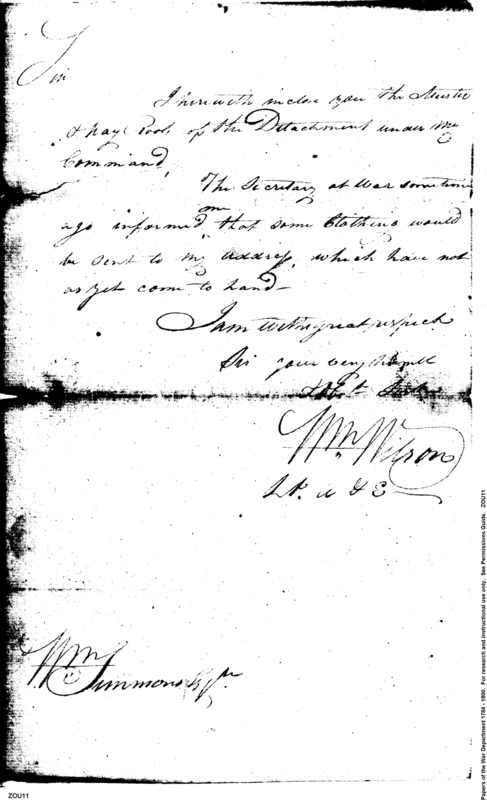 Sir
I herewith inclose you the Muster
& Pay Rools of the Detachment under my
Command,
The Secretary at War sometime
ago informed me that some Clothing would
be sent to my address, which have not
as yet come to hand—
I am with great respect
Sir your very humbl
Obt
Wm Wilson
Lt. A & E
Wm Simmons Esqr.
ZOU11
Papers of the War Department 1784 - 1800. For research and instructional use only. See Permissions Guide. ZOU11